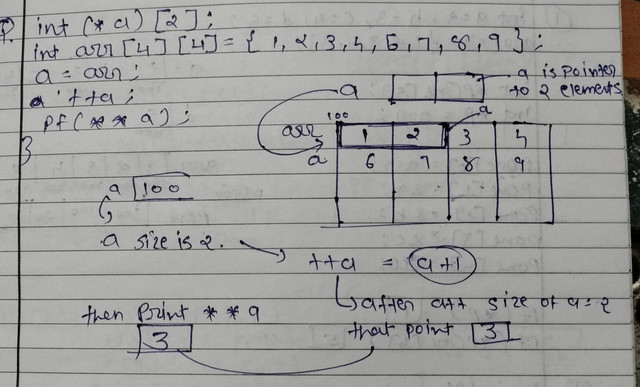 P. int (*a) [2];
int arr [4] [4] = { 1, 2, 3, 4, 6, 7, 8, 9 };
a = arr;
a ++a;
pf (* * a);
}
a
a is pointer
to 2 elements
100
a
arr 1 2 3 4
a 6 7 8 9
a 100
a size is 2.
++a = a+1
after a++ size of a = 2
that point 3
then print * * a
3